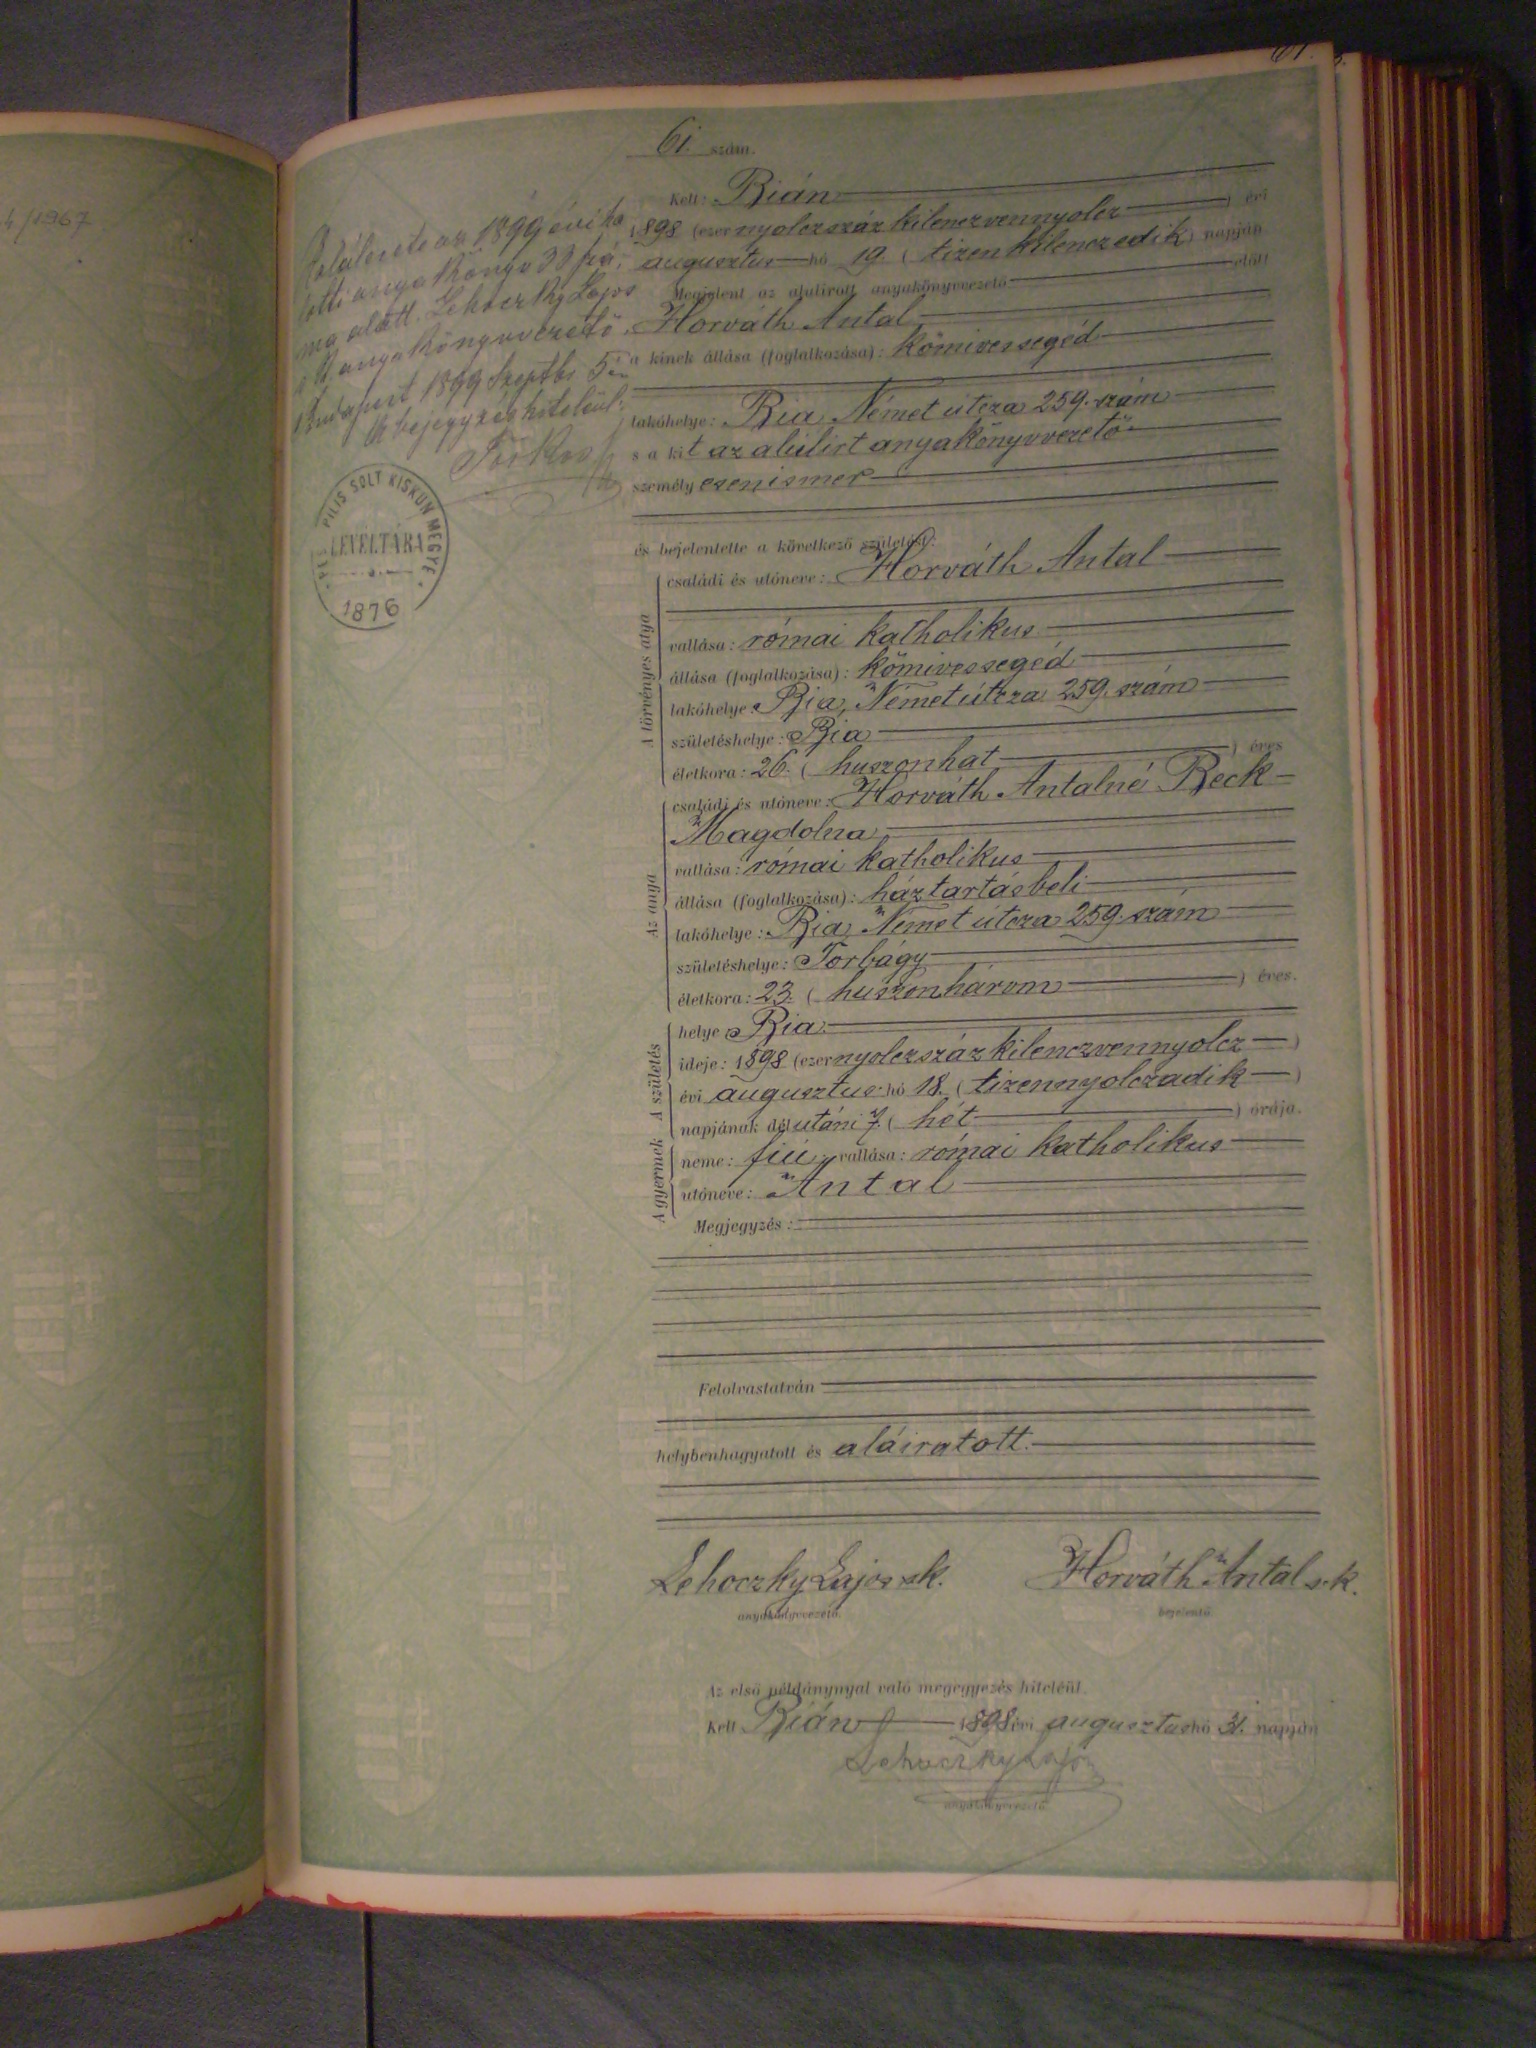 4/1967
61.
61. szám.
Kelt: Bián
1898 (ezer nyolczszáz kilenczvennyolcz ) évi
augusztus hó 19. ( tizenkilenczedik ) napján
Megjelent az alulirott anyakönyvvezető előtt
Horváth Antal
a kinek állása (foglalkozása): kőmivessegéd
lakóhelye: Bia Német útcza 259. szám
s a kit az alúlirt anyakönyvvezető
személyesen ismer
és bejelentette a következő születést:
A törvényes atya
családi és utóneve: Horváth Antal
vallása: római katholikus
állása (foglalkozása): kőmivessegéd
lakóhelye: Bia, Német útcza 259. szám
születéshelye: Bia
életkora: 26. ( huszonhat ) éves
Az anya
családi és utóneve: Horváth Antalné Reck
Magdolna
vallása: római katholikus
állása (foglalkozása): háztartásbeli
lakóhelye: Bia, Német útcza 259. szám
születéshelye: Torbágy
életkora: 23. ( huszonhárom ) éves.
A születés
helye: Bia
ideje: 1898 (ezer nyolczszáz kilenczvennyolcz )
évi augusztus hó 18. ( tizennyolczadik )
napjának délutáni 7. ( hét ) órája.
A gyermek
neme: fiú vallása: római katholikus
utóneve: Antal
Megjegyzés:
Felolvastatván
helybenhagyatott és aláiratott.
Lehoczky Lajos sk. Horváth Antal s.k.
anyakönyvvezető. bejelentő.
Az első példánynyal való megegyezés hiteléül.
Kelt Bián 1898 évi augusztus hó 31. napján
Lehoczky Lajos
anyakönyvvezető
Halálesete az 1899 évi ha
lotti anyakönyv 33 szá
ma alatt. Lehoczky Lajos
s.k. anyakönyvvezető.
Budapest 1899 Szeptbr 5én
A bejegyzés hiteléül:
PEST PILIS SOLT KISKUN MEGYE
LEVÉLTÁRA
1876